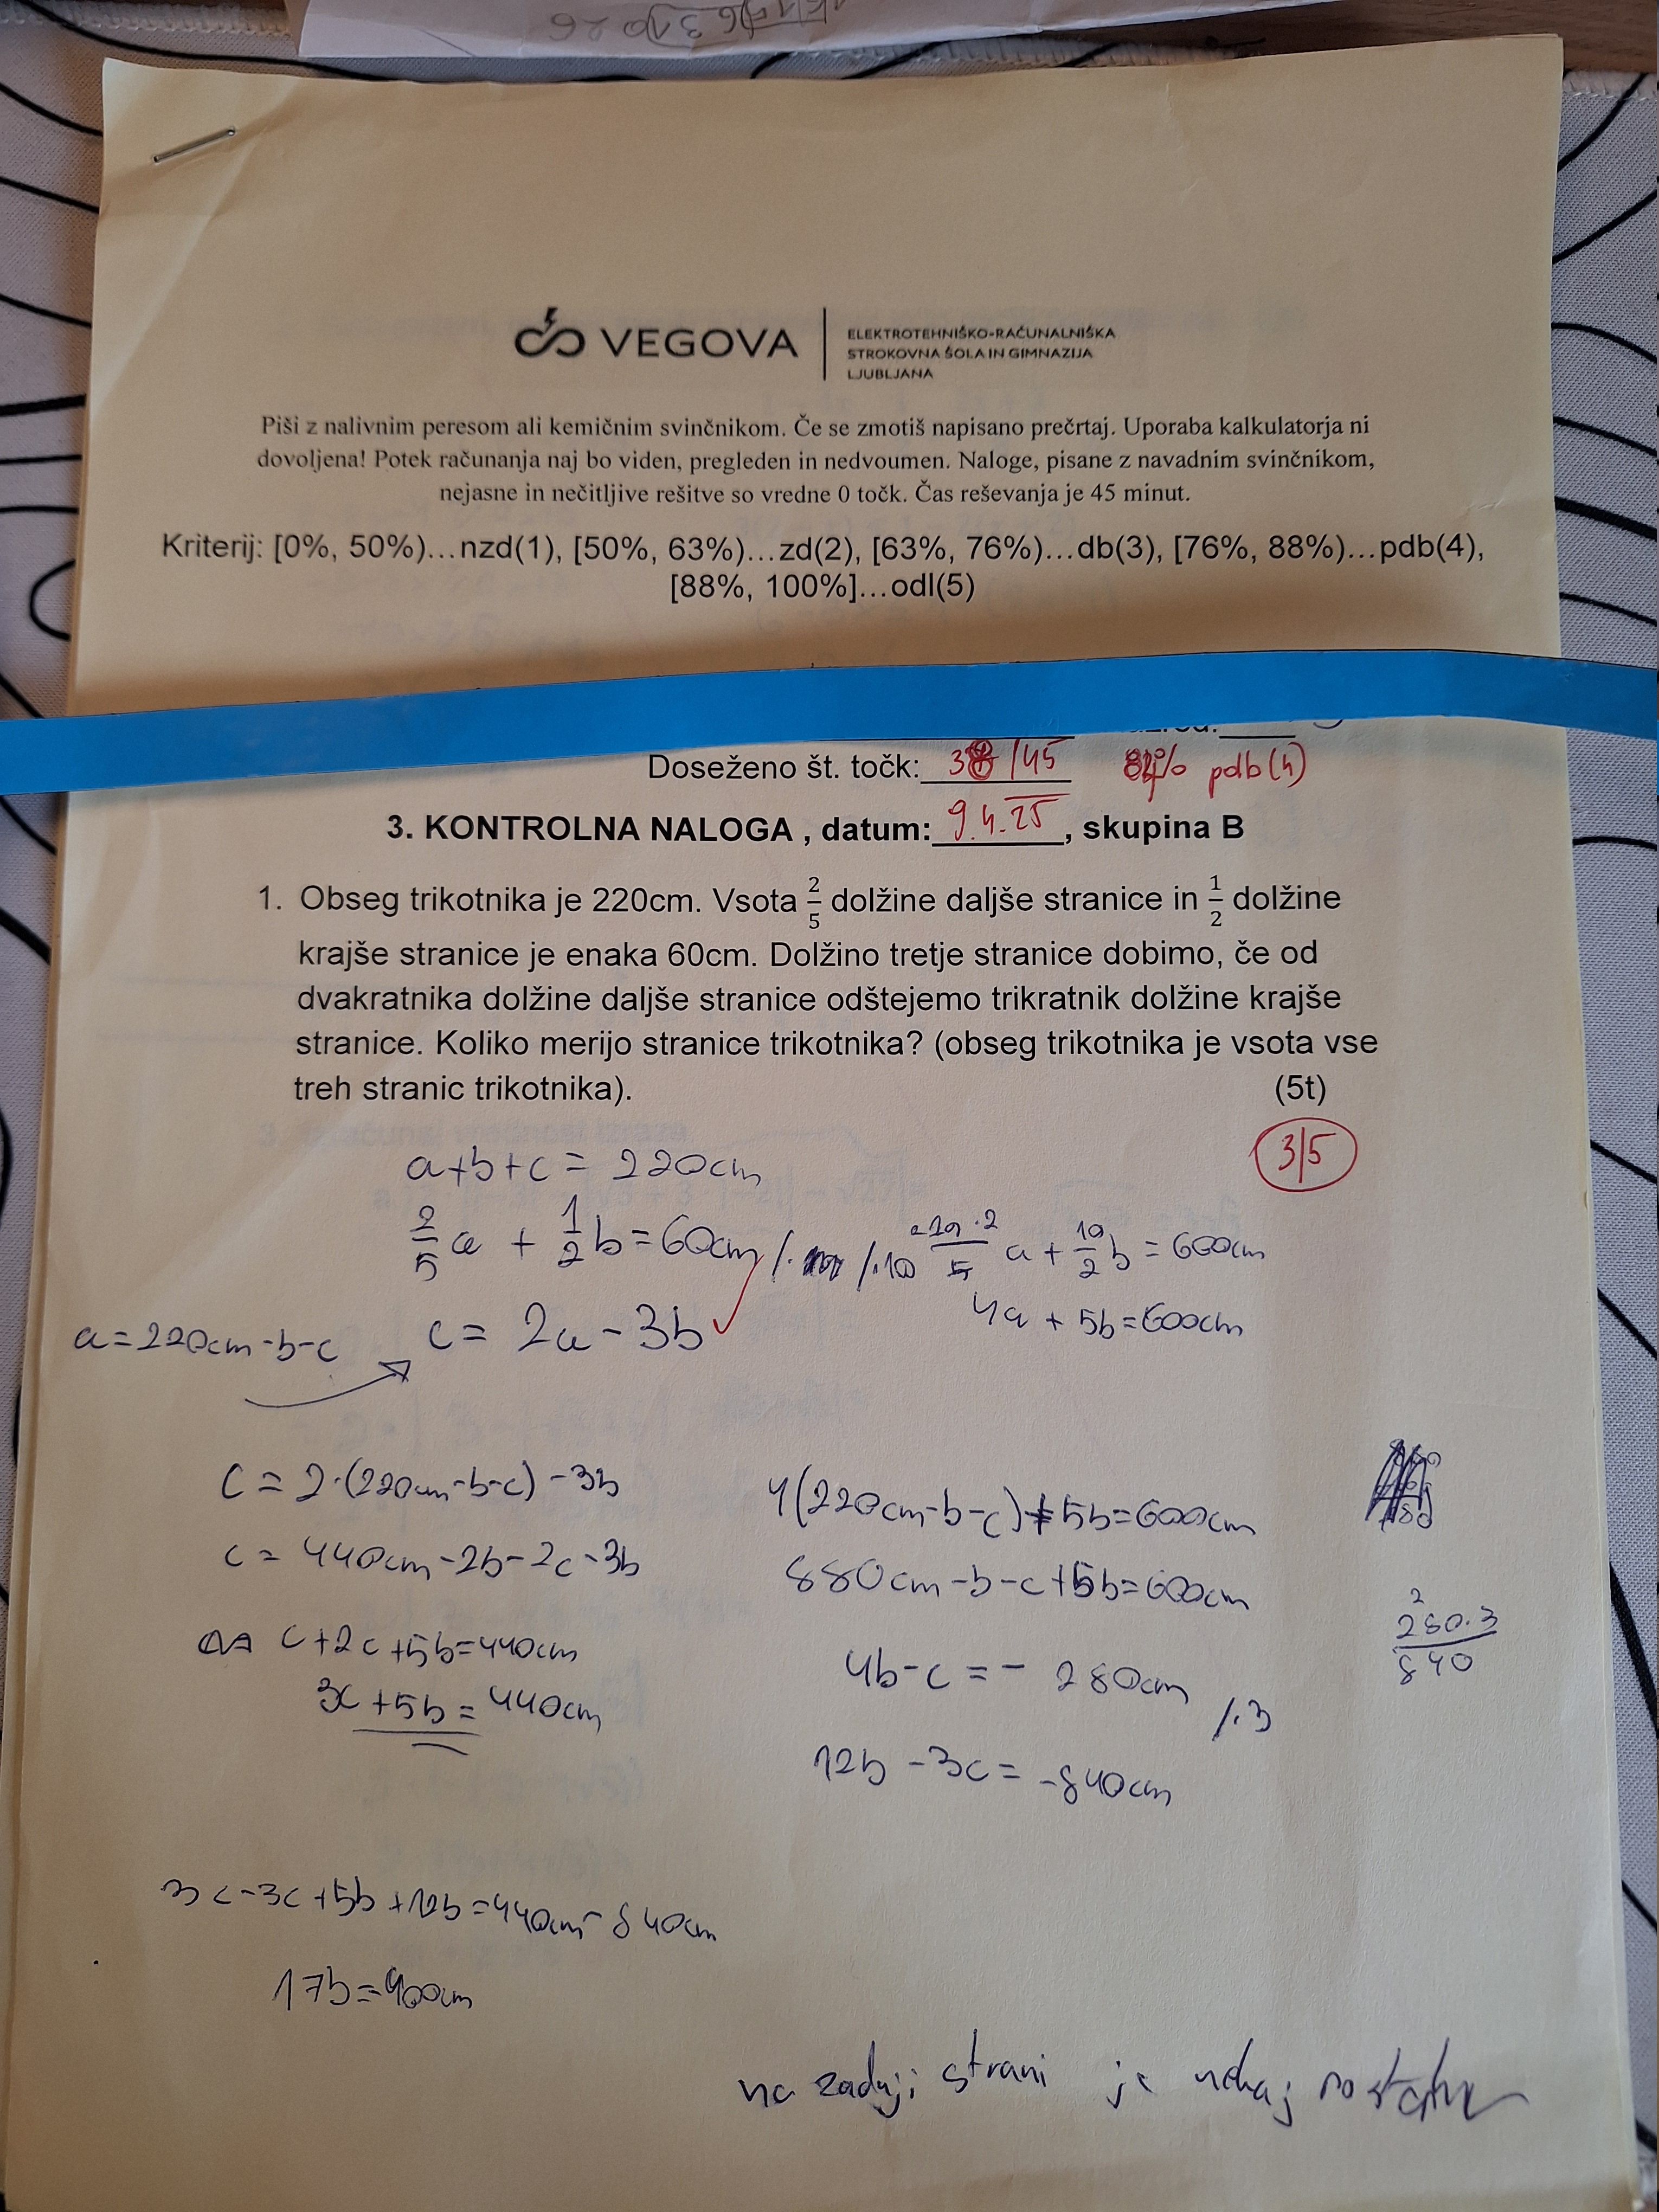 VEGOVA
ELEKTROTEHNIŠKO-RAČUNALNIŠKA
STROKOVNA ŠOLA IN GIMNAZIJA
LJUBLJANA
Piši z nalivnim peresom ali kemičnim svinčnikom. Če se zmotiš napisano prečrtaj. Uporaba kalkulatorja ni
dovoljena! Potek računanja naj bo viden, pregleden in nedvoumen. Naloge, pisane z navadnim svinčnikom,
nejasne in nečitljive rešitve so vredne 0 točk. Čas reševanja je 45 minut.
Kriterij: [0%, 50%)…nzd(1), [50%, 63%)…zd(2), [63%, 76%)…db(3), [76%, 88%)…pdb(4),
[88%, 100%]…odl(5)
Doseženo št. točk: /45 pdb(4)
3. KONTROLNA NALOGA , datum: 9.4.25, skupina B
1. Obseg trikotnika je 220cm. Vsota 2/5 dolžine daljše stranice in 1/2 dolžine
krajše stranice je enaka 60cm. Dolžino tretje stranice dobimo, če od
dvakratnika dolžine daljše stranice odštejemo trikratnik dolžine krajše
stranice. Koliko merijo stranice trikotnika? (obseg trikotnika je vsota vse
treh stranic trikotnika). (5t)
3/5
a+b+c = 220cm
2/5 a + 1/2 b = 60cm /·10 10·2/5 a + 10/2 b = 600cm
4a + 5b = 600cm
a = 220cm-b-c c = 2a - 3b
c = 2·(220cm-b-c) - 3b
c = 440cm-2b-2c-3b
c+2c+5b=440cm
3c+5b = 440cm
4(220cm-b-c)+5b=600cm
880cm-b-c+5b=600cm
4b-c = - 280cm /·3
12b - 3c = -840cm
280·3
840
3c-3c+5b+12b=440cm-840cm
17b=400cm
na zadnji strani je nekaj